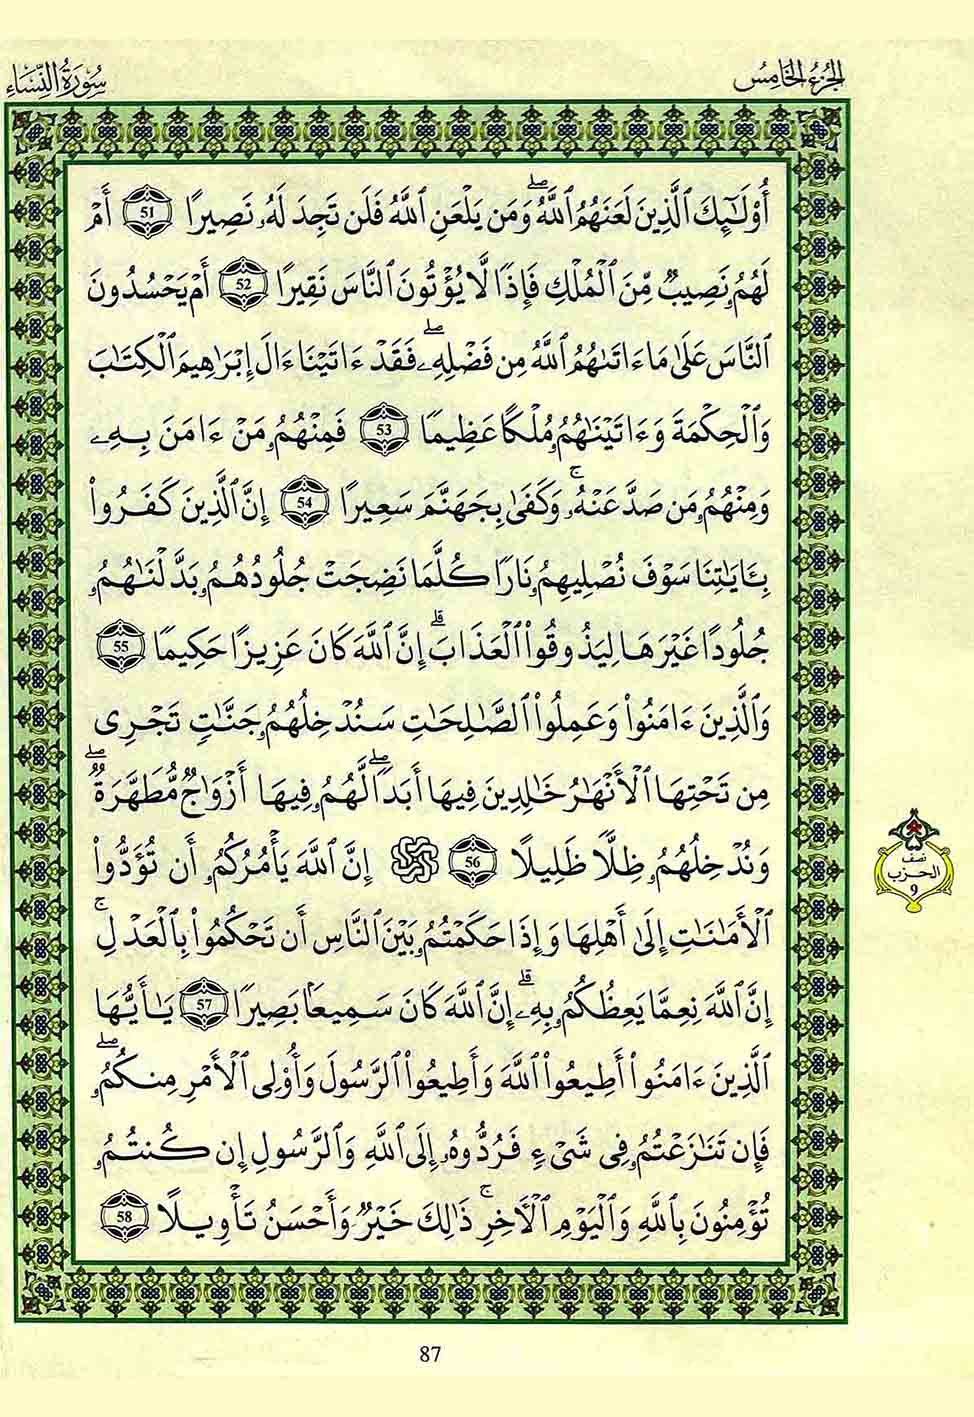 الجزء الخامس
سورة النساء
أُوْلَـٰٓئِكَ ٱلَّذِينَ لَعَنَهُمُ ٱللَّهُۖ وَمَن يَلْعَنِ ٱللَّهُ فَلَن تَجِدَ لَهُۥ نَصِيرًا 51 أَمْ
لَهُمُۥ نَصِيبٌ مِّنَ ٱلْمُلْكِ فَإِذًا لَّا يُؤْتُونَ ٱلنَّاسَ نَقِيرًا 52 أَمْ يَحْسُدُونَ
ٱلنَّاسَ عَلَىٰ مَا ءَاتَىٰهُمُ ٱللَّهُ مِن فَضْلِهِۦۖ فَقَدْ ءَاتَيْنَا ءَالَ إِبْرَٰهِيمَ ٱلْكِتَـٰبَ
وَٱلْحِكْمَةَ وَءَاتَيْنَـٰهُمُۥ مُلْكًا عَظِيمًا 53 فَمِنْهُمُۥ مَنْ ءَامَنَ بِهِۦ
وَمِنْهُمُۥ مَن صَدَّ عَنْهُۥۚ وَكَفَىٰ بِجَهَنَّمَ سَعِيرًا 54 إِنَّ ٱلَّذِينَ كَفَرُواْ
بِـَٔايَـٰتِنَا سَوْفَ نُصْلِيهِمُۥ نَارًا كُلَّمَا نَضِجَتْ جُلُودُهُمُۥ بَدَّلْنَـٰهُمُۥ
جُلُودًا غَيْرَهَا لِيَذُوقُواْ ٱلْعَذَابَۗ إِنَّ ٱللَّهَ كَانَ عَزِيزًا حَكِيمًا 55
وَٱلَّذِينَ ءَامَنُواْ وَعَمِلُواْ ٱلصَّـٰلِحَـٰتِ سَنُدْخِلُهُمُۥ جَنَّـٰتٍ تَجْرِى
مِن تَحْتِهَا ٱلْأَنْهَـٰرُ خَـٰلِدِينَ فِيهَا أَبَدًاۖ لَّهُمُۥ فِيهَا أَزْوَٰجٌ مُّطَهَّرَةٌۖ
وَنُدْخِلُهُمُۥ ظِلًّا ظَلِيلًا 56 إِنَّ ٱللَّهَ يَأْمُرُكُمُۥ أَن تُؤَدُّواْ
ٱلْأَمَـٰنَـٰتِ إِلَىٰ أَهْلِهَا وَإِذَا حَكَمْتُمُۥ بَيْنَ ٱلنَّاسِ أَن تَحْكُمُواْ بِٱلْعَدْلِۚ
إِنَّ ٱللَّهَ نِعِمَّا يَعِظُكُمُۥ بِهِۦۗ إِنَّ ٱللَّهَ كَانَ سَمِيعًۢا بَصِيرًا 57 يَـٰأَيُّهَا
ٱلَّذِينَ ءَامَنُواْ أَطِيعُواْ ٱللَّهَ وَأَطِيعُواْ ٱلرَّسُولَ وَأُوْلِى ٱلْأَمْرِ مِنكُمُۥۖ
فَإِن تَنَـٰزَعْتُمُۥ فِى شَىْءٍ فَرُدُّوهُۥ إِلَى ٱللَّهِ وَٱلرَّسُولِ إِن كُنتُمُۥ
تُؤْمِنُونَ بِٱللَّهِ وَٱلْيَوْمِ ٱلْأٓخِرِۚ ذَٰلِكَ خَيْرٌ وَأَحْسَنُ تَأْوِيلًا 58
نصف
الحزب
9
87